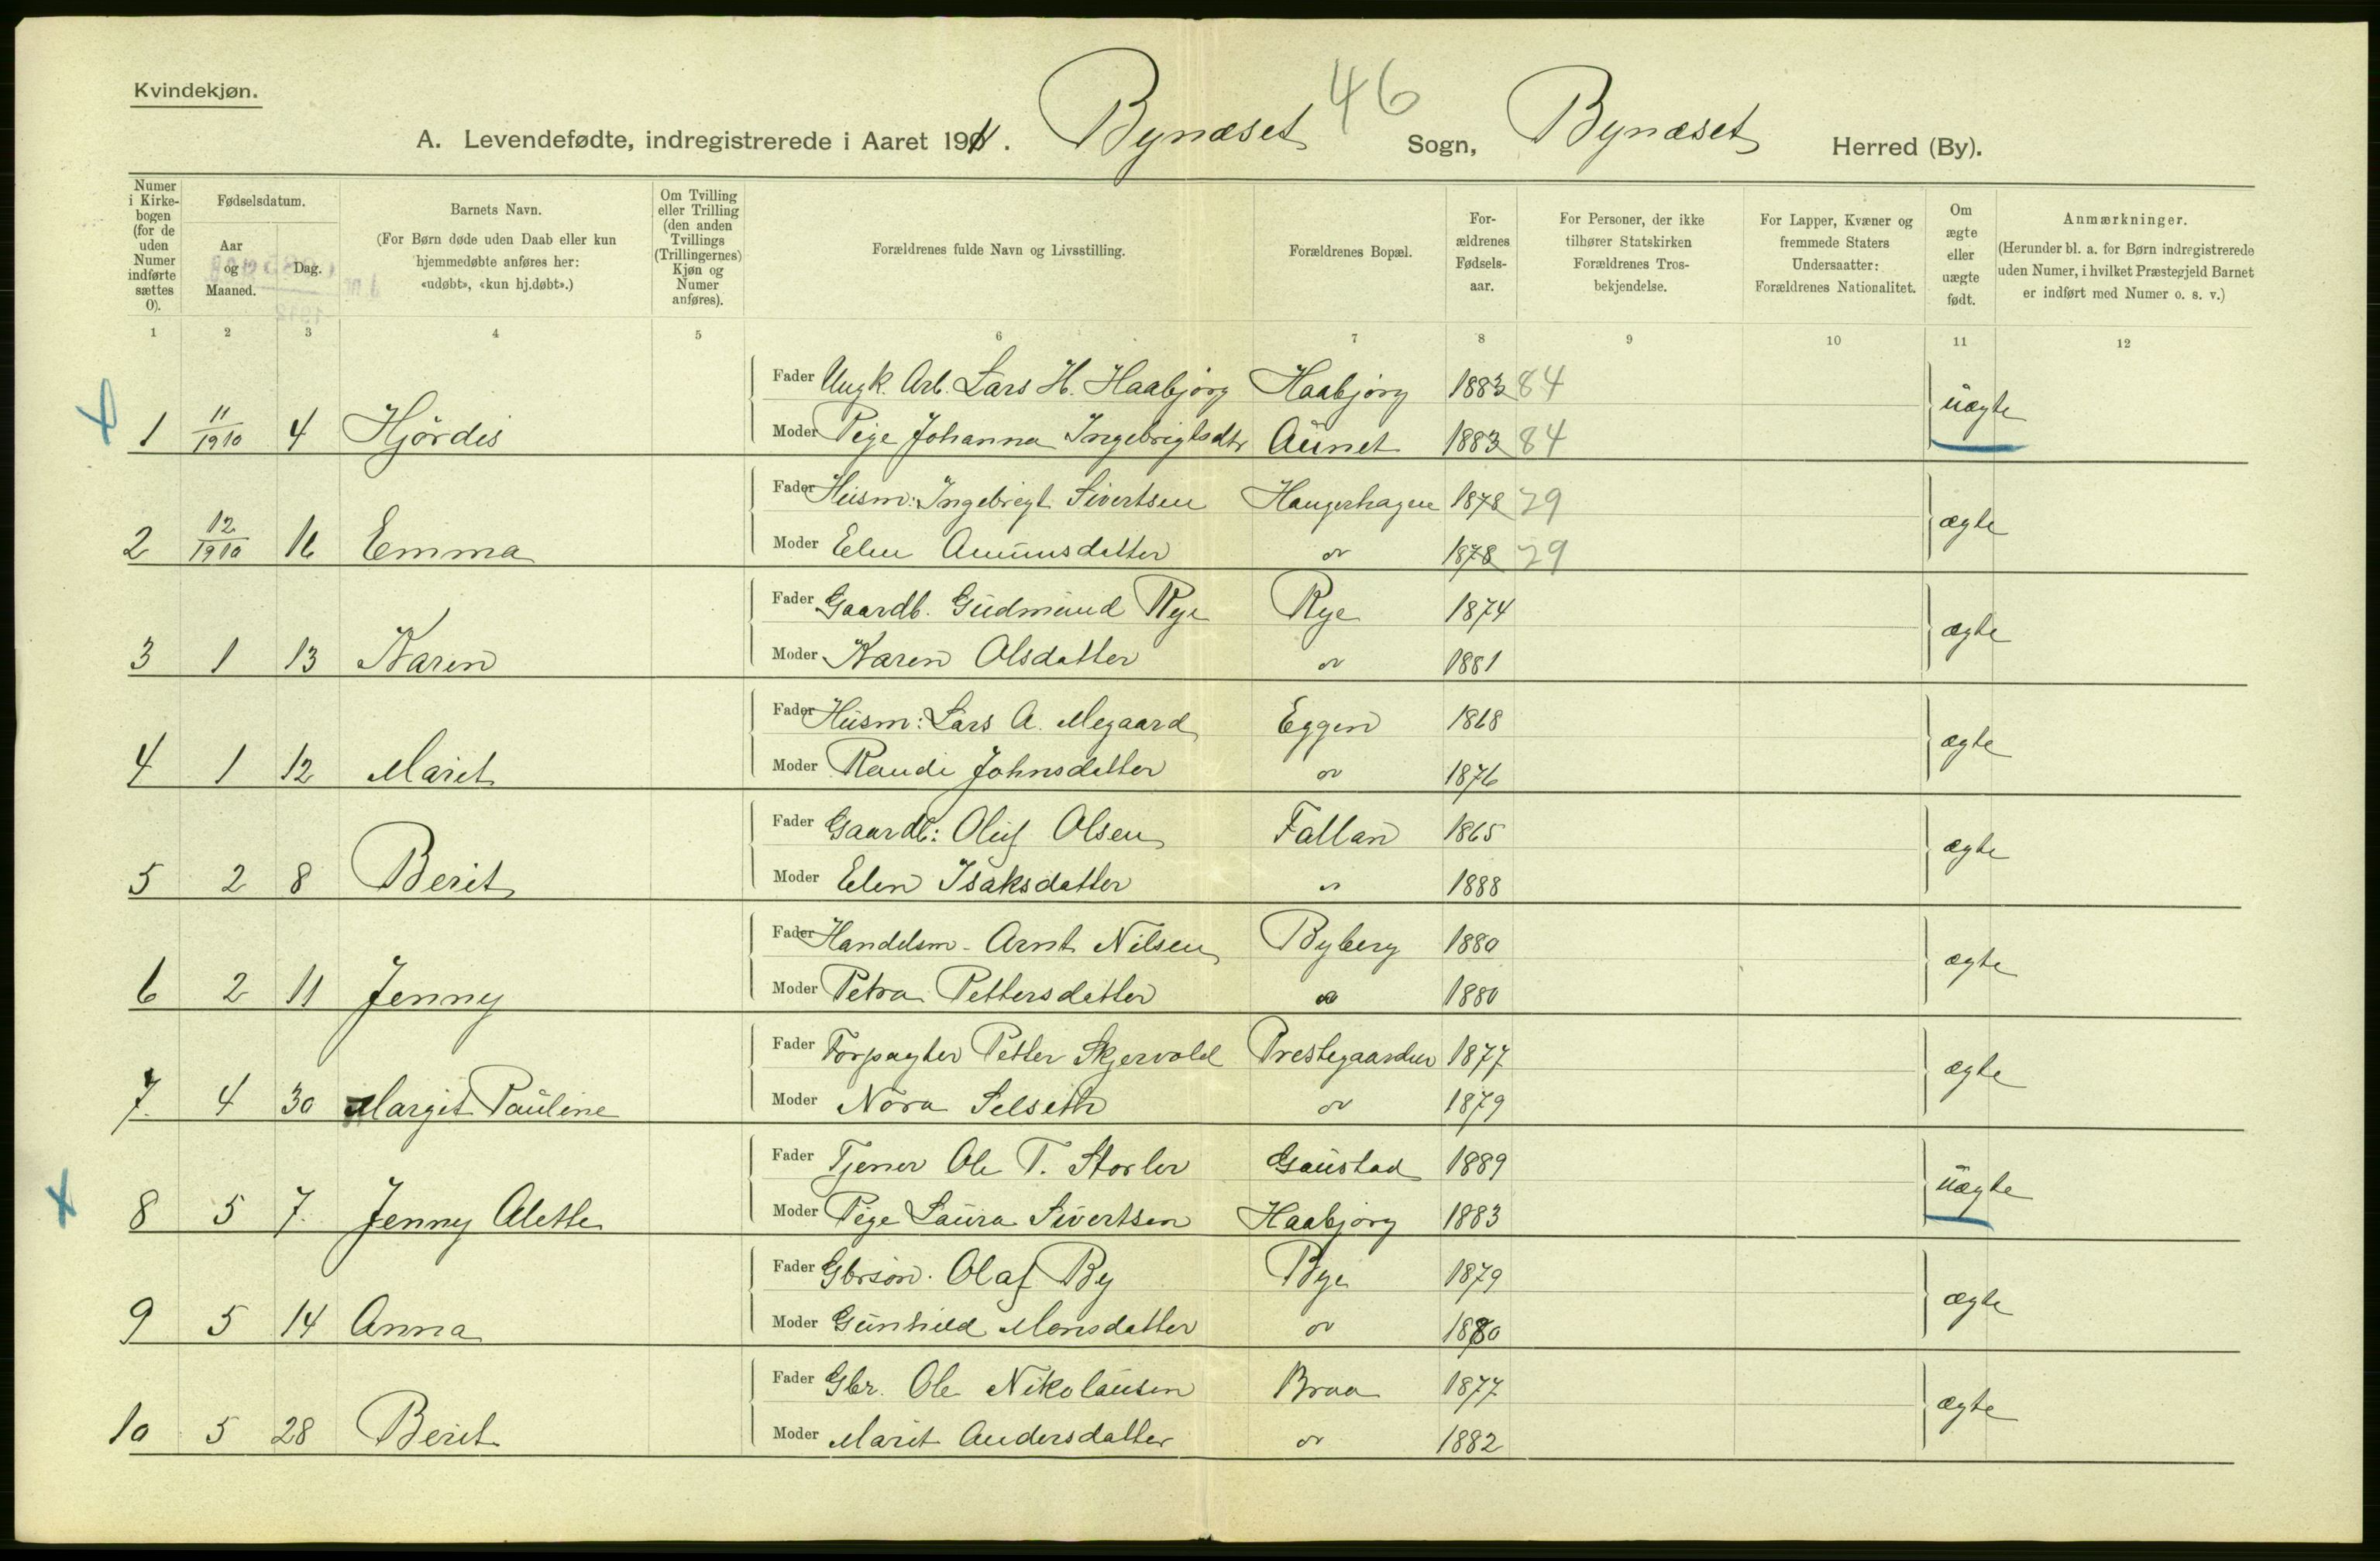 Kvindekjøn.
46
A. Levendefødte, indregistrerede i Aaret 1911. Bynæset Sogn, Bynæset Herred (By).
Numer i Kirkebogen (for de uden Numer indførte sættes 0).
Fødselsdatum.
Aar og Maaned.
Dag.
Barnets Navn.
(For Børn døde uden Daab eller kun hjemmedøbte anføres her: «udøbt», «kun hj.døbt».)
Om Tvilling eller Trilling (den anden Tvillings (Trillingernes) Kjøn og Numer anføres).
Forældrenes fulde Navn og Livsstilling.
Forældrenes Bopæl.
Forældrenes Fødselsaar.
For Personer, der ikke tilhører Statskirken Forældrenes Trosbekjendelse.
For Lapper, Kvæner og fremmede Staters Undersaatter: Forældrenes Nationalitet.
Om ægte eller uægte født.
Anmærkninger.
(Herunder bl. a. for Børn indregistrerede uden Numer, i hvilket Præstegjeld Barnet er indført med Numer o. s. v.)
1 2 3 4 5 6 7 8 9 10 11 12
Fader Ungk. Arb. Lars H. Haabjørg Haabjørg 1883 84
1 11/1910 4 Hjørdis Moder Pige Johanna Ingebrigtsdtr Aunet 1883 84 uægte
Fader Husm: Ingebrigt Sivertsen Haugerhagen 1878 79
2 12/1910 16 Emma Moder Elen 1878 79 ægte
Fader Gaardb. Gudmund Rye Rye 1874
3 1 13 Karen Moder Karen Olsdatter " 1881 ægte
Fader Husm: Lars A. Megaard Eggen 1868
4 1 12 Marit Moder Randi Johnsdatter " 1876 ægte
Fader Gaardb: Oluf Olsen Fallan 1865
5 2 8 Berit Moder Elen Isaksdatter " 1888 ægte
Fader Handelsm. Arnt Nilsen Byberg 1880
6 2 11 Jenny Moder Petra Pettersdatter " 1880 ægte
Fader Forpagter Petter Skjervold Prestegaarden 1877
7. 4 30 Margit Pauline Moder Nora Selseth " 1879 ægte
Fader Tjener Ole T. Storler Gaustad 1889
8 5 7. Jenny Alette Moder Pige Laura Sivertsen Haabjørg 1883 uægte
Fader Gbrsøn. Olaf By Bye 1879
9 5 14 Anna Moder Gunhild Monsdatter " 1880 ægte
Fader Gbr. Ole Nikolausen Braa 1877
10 5 28 Berit Moder Marit Andersdatter " 1882 ægte